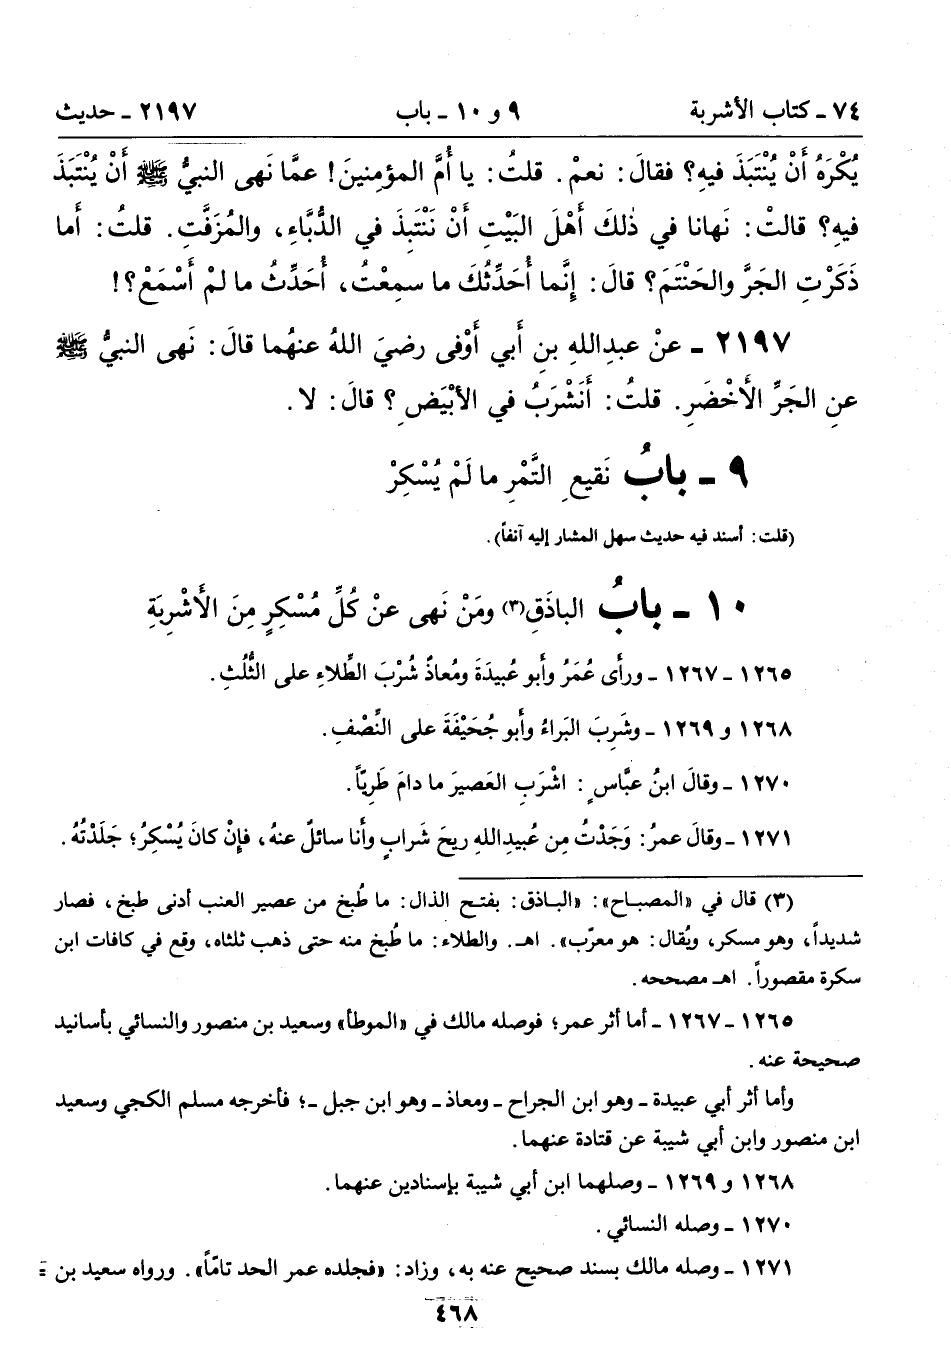 ٧٤ ـ كتاب الأشربة ٩ و ١٠ ـ باب ٢١٩٧ ـ حديث
يُكْرَهُ أَنْ يُنْتَبَذَ فيهِ؟ فقالَ: نعمْ. قلتُ: يا أُمَّ المؤمنينَ! عمَّا نَهى النبيُّ ﷺ أَنْ يُنْتَبَذَ
فيهِ؟ قالتْ: نَهانا في ذٰلكَ أَهْلَ البَيْتِ أَنْ نَنْتَبِذَ في الدُّبَّاءِ، والمُزَفَّتِ. قلتُ: أَما
ذَكَرْتِ الجَرَّ والحَنْتَمَ؟ قالَ: إِنَّما أُحَدِّثُكَ ما سمِعْتُ، أُحَدِّثُ ما لمْ أَسْمَعْ؟!
٢١٩٧ ـ عنْ عبدِاللهِ بنِ أَبي أَوْفى رضيَ اللهُ عنهُما قالَ: نَهى النبيُّ ﷺ
عنِ الجَرِّ الأَخْضَرِ. قلتُ: أَنَشْرَبُ في الأبْيَضِ؟ قالَ: لا.
٩ ـ بابُ نَقيعِ التَّمْرِ ما لَمْ يُسْكِرْ
(قلت: أسند فيه حديث سهل المشار إليه آنفاً).
١٠ ـ بابُ الباذَقِ(٣) ومَنْ نَهى عنْ كُلِّ مُسْكِرٍ مِنَ الأَشْرِبَةِ
١٢٦٥ ـ ١٢٦٧ ـ ورأى عُمَرُ وأَبو عُبيدَةَ ومُعاذٌ شُرْبَ الطِّلاءِ على الثُّلُثِ.
١٢٦٨ و ١٢٦٩ ـ وشَرِبَ البَراءُ وأَبو جُحَيْفَةَ على النِّصْفِ.
١٢٧٠ ـ وقالَ ابنُ عبَّاسٍ: اشْرَبِ العَصيرَ ما دامَ طَرِيّاً.
١٢٧١ ـ وقالَ عمرُ: وَجَدْتُ مِن عُبيدِاللهِ ريحَ شَرابٍ وأَنا سائلٌ عنهُ، فإِنْ كانَ يُسْكِرُ؛ جَلَدْتُهُ.
(٣) قال في «المصباح»: «الباذق: بفتح الذال: ما طُبخ من عصير العنب أدنى طبخ، فصار
شديداً، وهو مسكر، ويُقال: هو معرّب». اهـ. والطلاء: ما طُبخ منه حتى ذهب ثلثاه، وقع في كافات ابن
سكرة مقصوراً. اهـ مصححه.
١٢٦٥ ـ ١٢٦٧ ـ أما أثر عمر؛ فوصله مالك في «الموطأ» وسعيد بن منصور والنسائي بأسانيد
صحيحة عنه.
وأما أثر أبي عبيدة ـ وهو ابن الجراح ـ ومعاذ ـ وهو ابن جبل ـ؛ فأخرجه مسلم الكجي وسعيد
ابن منصور وابن أبي شيبة عن قتادة عنهما.
١٢٦٨ و ١٢٦٩ ـ وصلهما ابن أبي شيبة بإسنادين عنهما.
١٢٧٠ ـ وصله النسائي.
١٢٧١ ـ وصله مالك بسند صحيح عنه به، وزاد: «فجلده عمر الحد تامّاً». ورواه سعيد بن =
٤٦٨